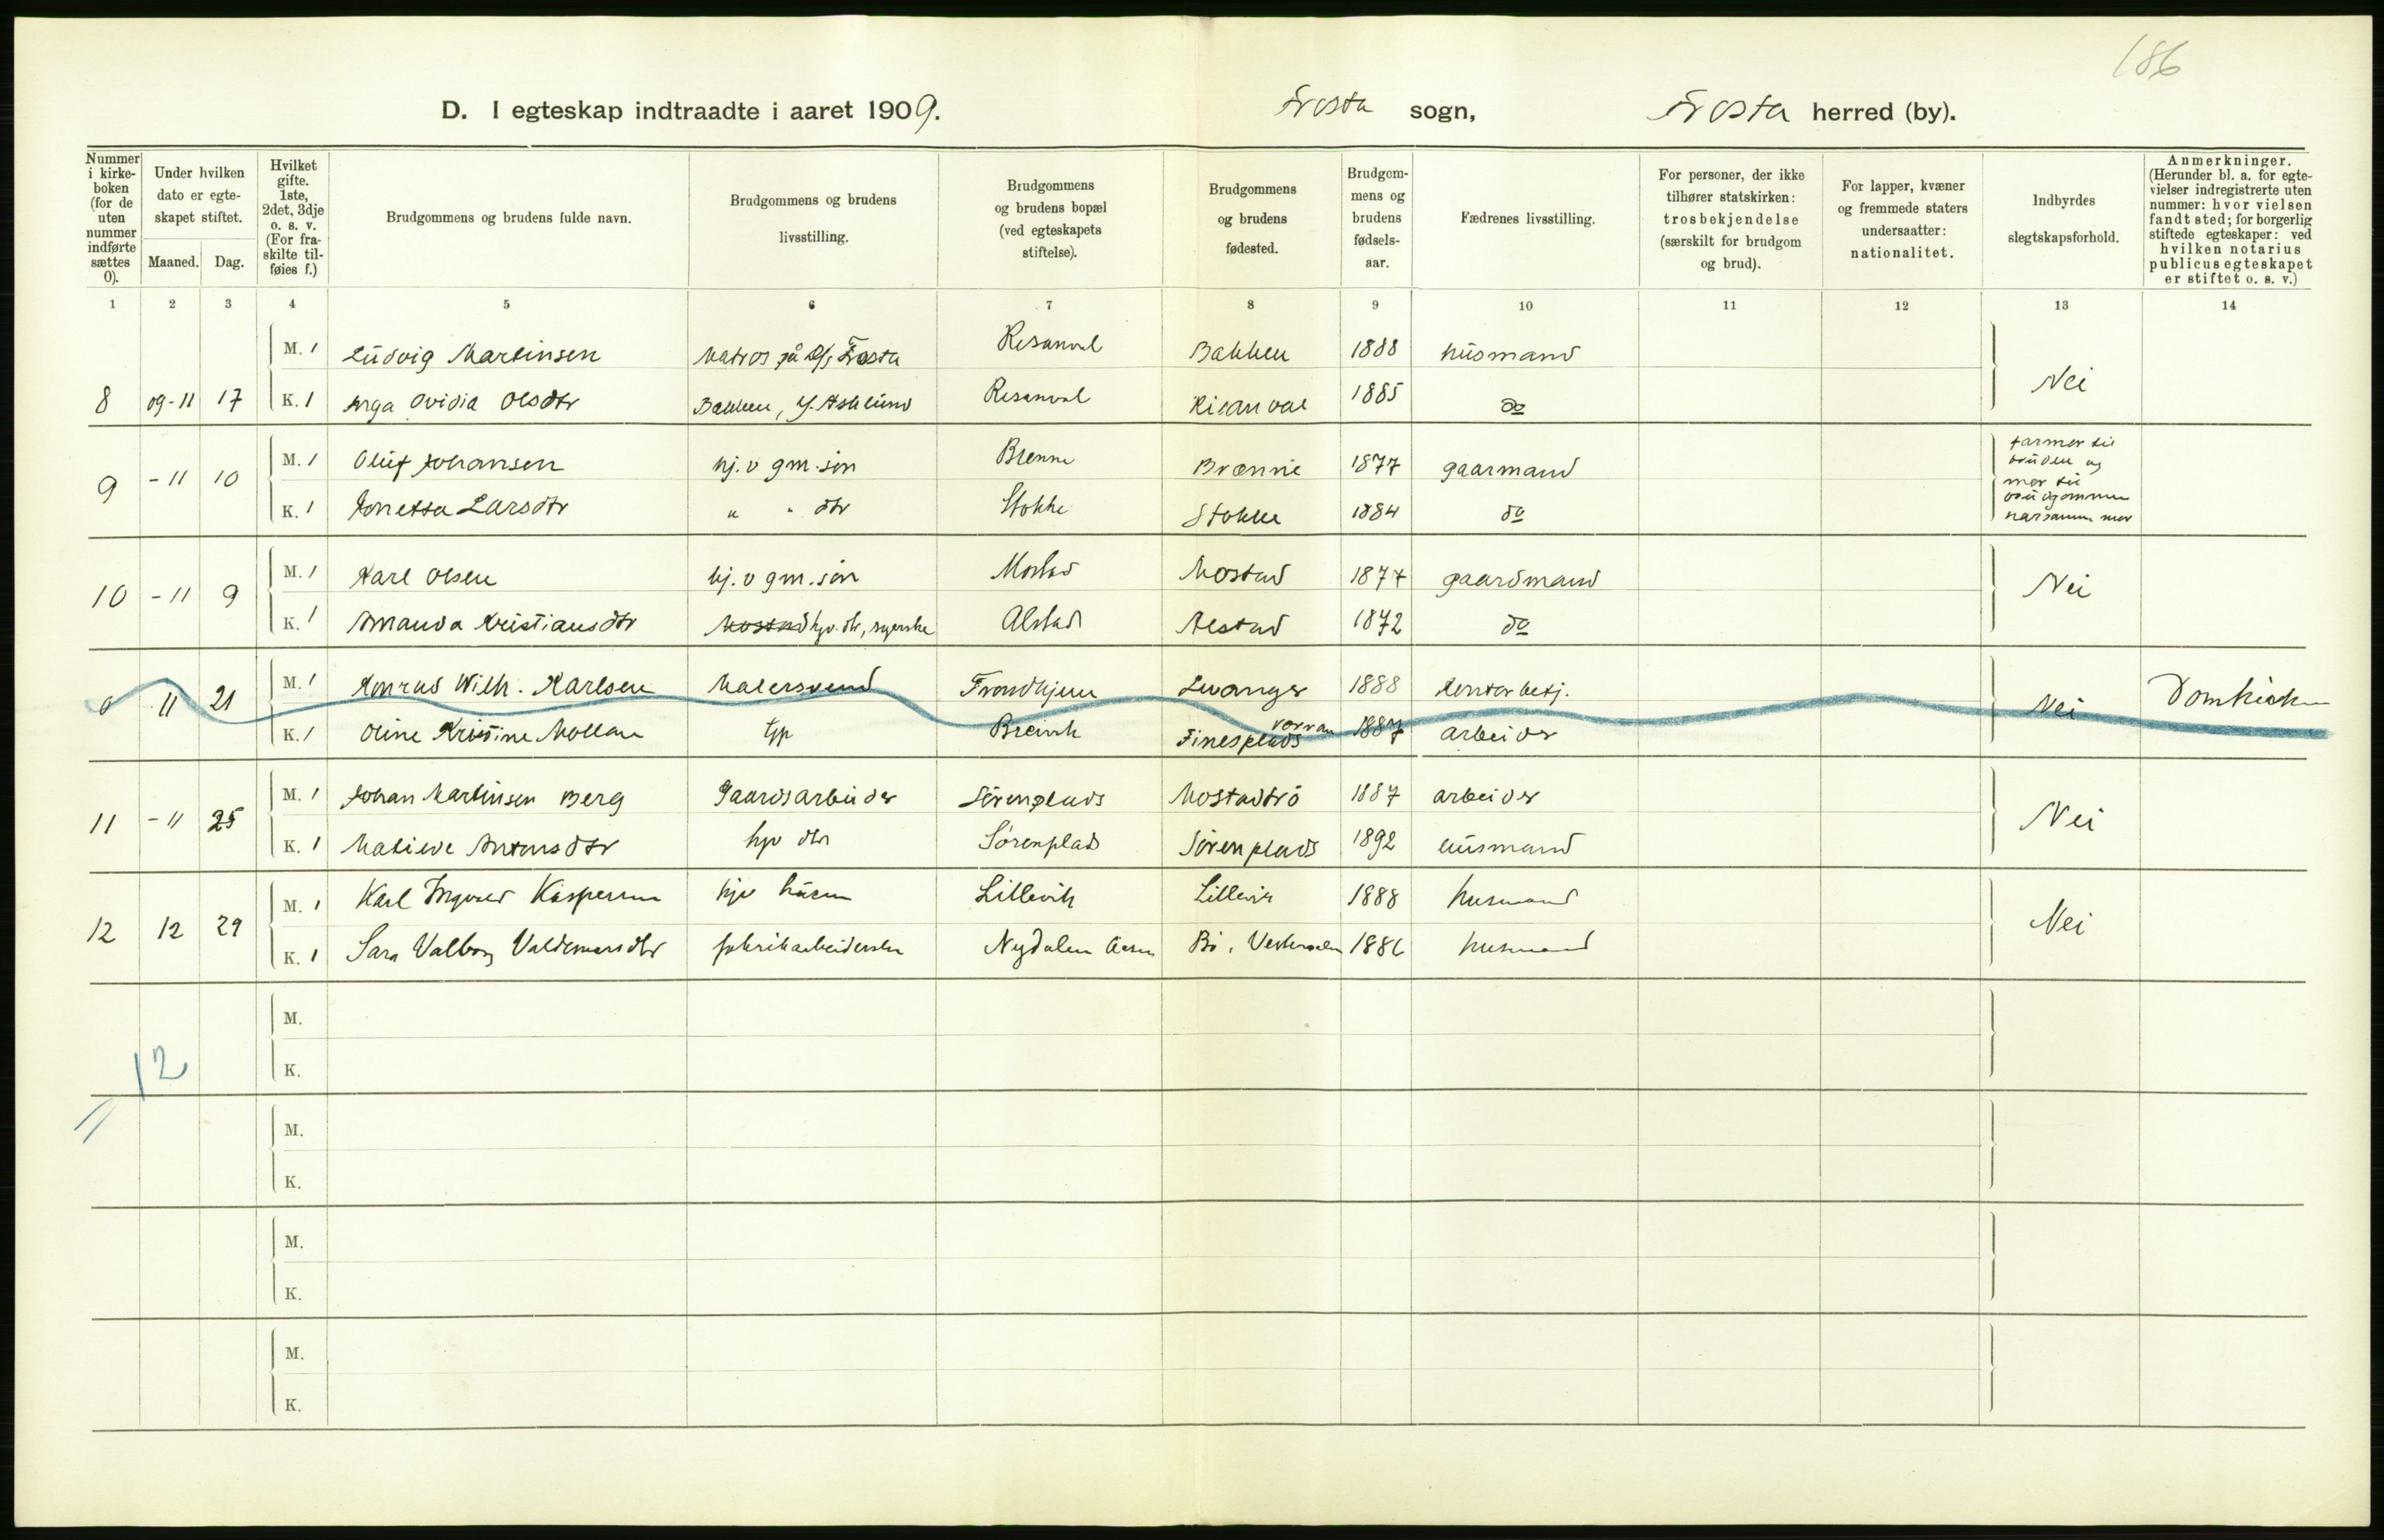 186
D. I egteskap indtraadte i aaret 1909. Frosta sogn, Frosta herred (by).
Nummer i kirke-boken (for de uten nummer indførte sættes 0).
Under hvilken dato er egte-skapet stiftet.
Maaned. Dag.
Hvilket gifte. 1ste, 2det, 3dje o. s. v. (For fra-skilte til-føies f.)
Brudgommens og brudens fulde navn.
Brudgommens og brudens livsstilling.
Brudgommens og brudens bopæl (ved egteskapets stiftelse).
Brudgommens og brudens fødested.
Brudgom-mens og brudens fødsels-aar.
Fædrenes livsstilling.
For personer, der ikke tilhører statskirken: trosbekjendelse (særskilt for brudgom og brud).
For lapper, kvæner og fremmede staters undersaatter: nationalitet.
Indbyrdes slegtskapsforhold.
Anmerkninger. (Herunder bl. a. for egte-vielser indregistrerte uten nummer: hvor vielsen fandt sted; for borgerlig stiftede egteskaper: ved hvilken notarius publicus egteskapet er stiftet o. s. v.)
1 2 3 4 5 6 7 8 9 10 11 12 13 14
M. 1 Ludvig Martinsen Matros på D/S Frosta Risanval Bakken 1888 husmand
8 09-11 17 K. 1 Inga Ovidia Olsdtr Bakken, Risanval Risanval 1885 do Nei
M. 1 Oluf Johansen hj. v gm. søn Brenne Brænne 1877 gaarmand
9 - 11 10 K. 1 Jonetta Larsdtr " " dtr Stokke Stokke 1884 do
farmor til
bruden og
mor til
brudgommen
var samme mor
M. 1 Karl Olsen hj. v gm. søn Mostad Mostad 1877 gaardmand
10 - 11 9 K. 1 Amanda Kristiansdtr Mostad hjv. dtr, syerske Alstad Alstad 1872 do Nei
M. 1 Konrad Wilh. Karlsen Malersvend Trondhjem Levanger 1888 kontorbetj.
0 11 21 K. 1 Oline Kristine Mollan tjp Breivik Finesplads 1887 arbeider Nei Domkirken
M. 1 Johan Martinsen Berg Gaardsarbeider Sørenplads Mostadtrø 1887 arbeider
11 - 11 25 K. 1 Matilde Antonsdtr hjv dtr Sørenplads Sørenplads 1892 husmand Nei
M. 1 Karl Ingvald Kaspersen hjv Lillevik Lillevik 1888 husmand
12 12 29 K. 1 Sara Valborg Valdemarsdtr fabrikarbeiderske Nydalen Aasen Bø, Vesteraalen 1886 husmand Nei
M.
K.
12
M.
K.
M.
K.
M.
K.